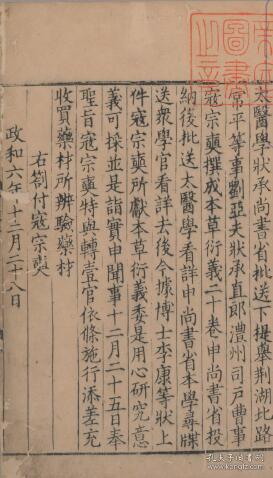 太醫學狀承尚書省批送下提舉荆湖北路
常平等事劉亞夫狀承直郎澧州司戶曹事
寇宗奭撰成本草衍義二十卷申尚書省投
納後批送太醫學看詳申尚書省本學尋牒
送衆學官看詳去後今據博士李康等狀上
件寇宗奭所獻本草衍義委是用心研究意
義可採並是詣實申聞事十二月二十五日奉
聖旨寇宗奭特與轉壹官依條施行添差充
收買藥材所辨驗藥材
右劄付寇宗奭
政和六年十二月二十八日
圖書
之
孔夫子舊書網